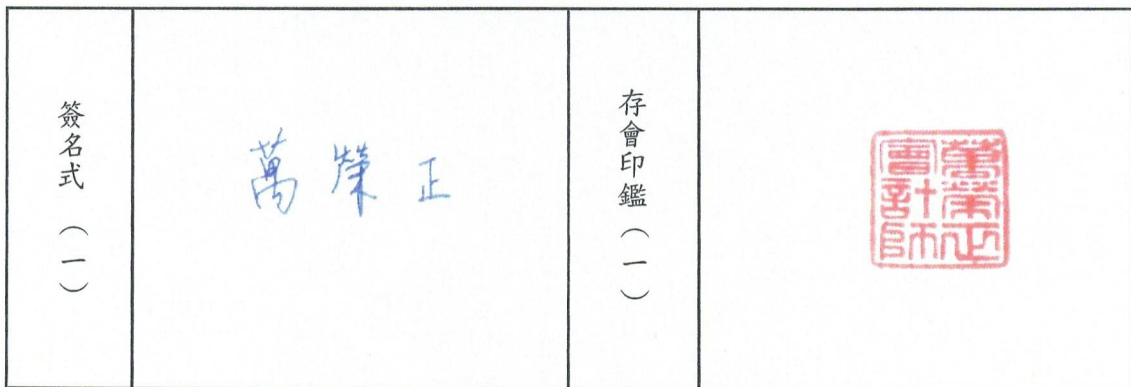 簽名式（一）
萬榮正
存會印鑑（一）
萬榮正
會計師